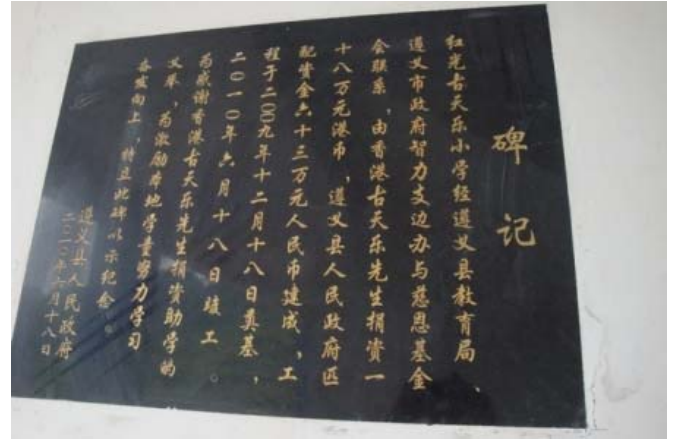 碑记
红光古天乐小学经遵义县教育局、
遵义市政府智力支边办与慈恩基金
会联系，由香港古天乐先生捐资一
十八万元港币，遵义县人民政府匹
配资金六十三万元人民币建成，工
程于二〇〇九年十二月十八日奠基，
二〇一〇年六月十八日竣工。
为感谢香港古天乐先生捐资助学的
义举，为激励本地学童努力学习
奋发向上，特立此碑以示纪念。
遵义县人民政府
二〇一〇年六月十八日